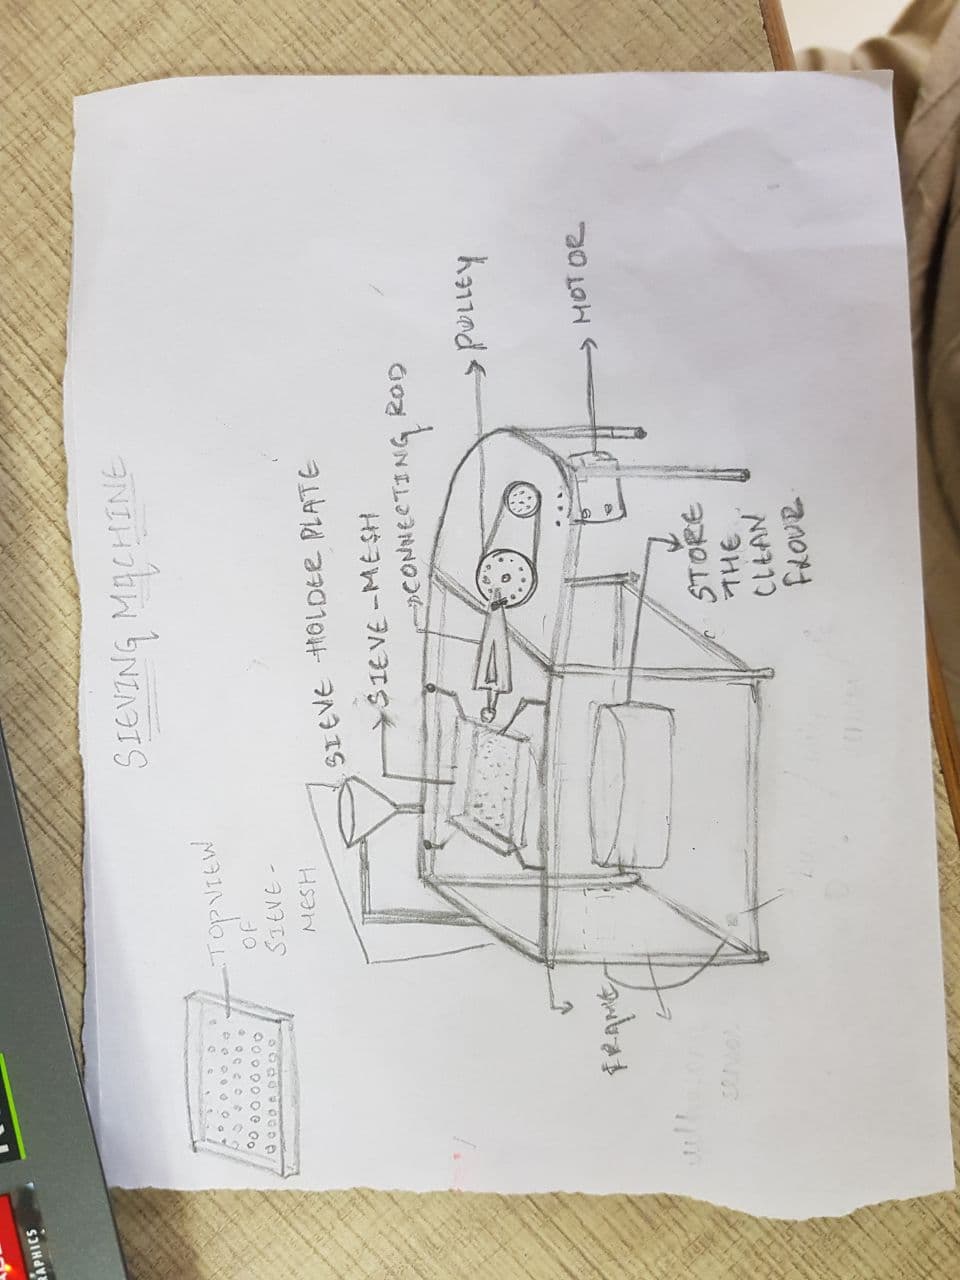 SIEVING MACHINE
TOPVIEW
OF
SIEVE-
MESH
SIEVE HOLDER PLATE
SIEVE-MESH
CONNECTING ROD
PULLEY
MOTOR
STORE
THE
CLEAN
FLOUR
FRAME
RAPHICS